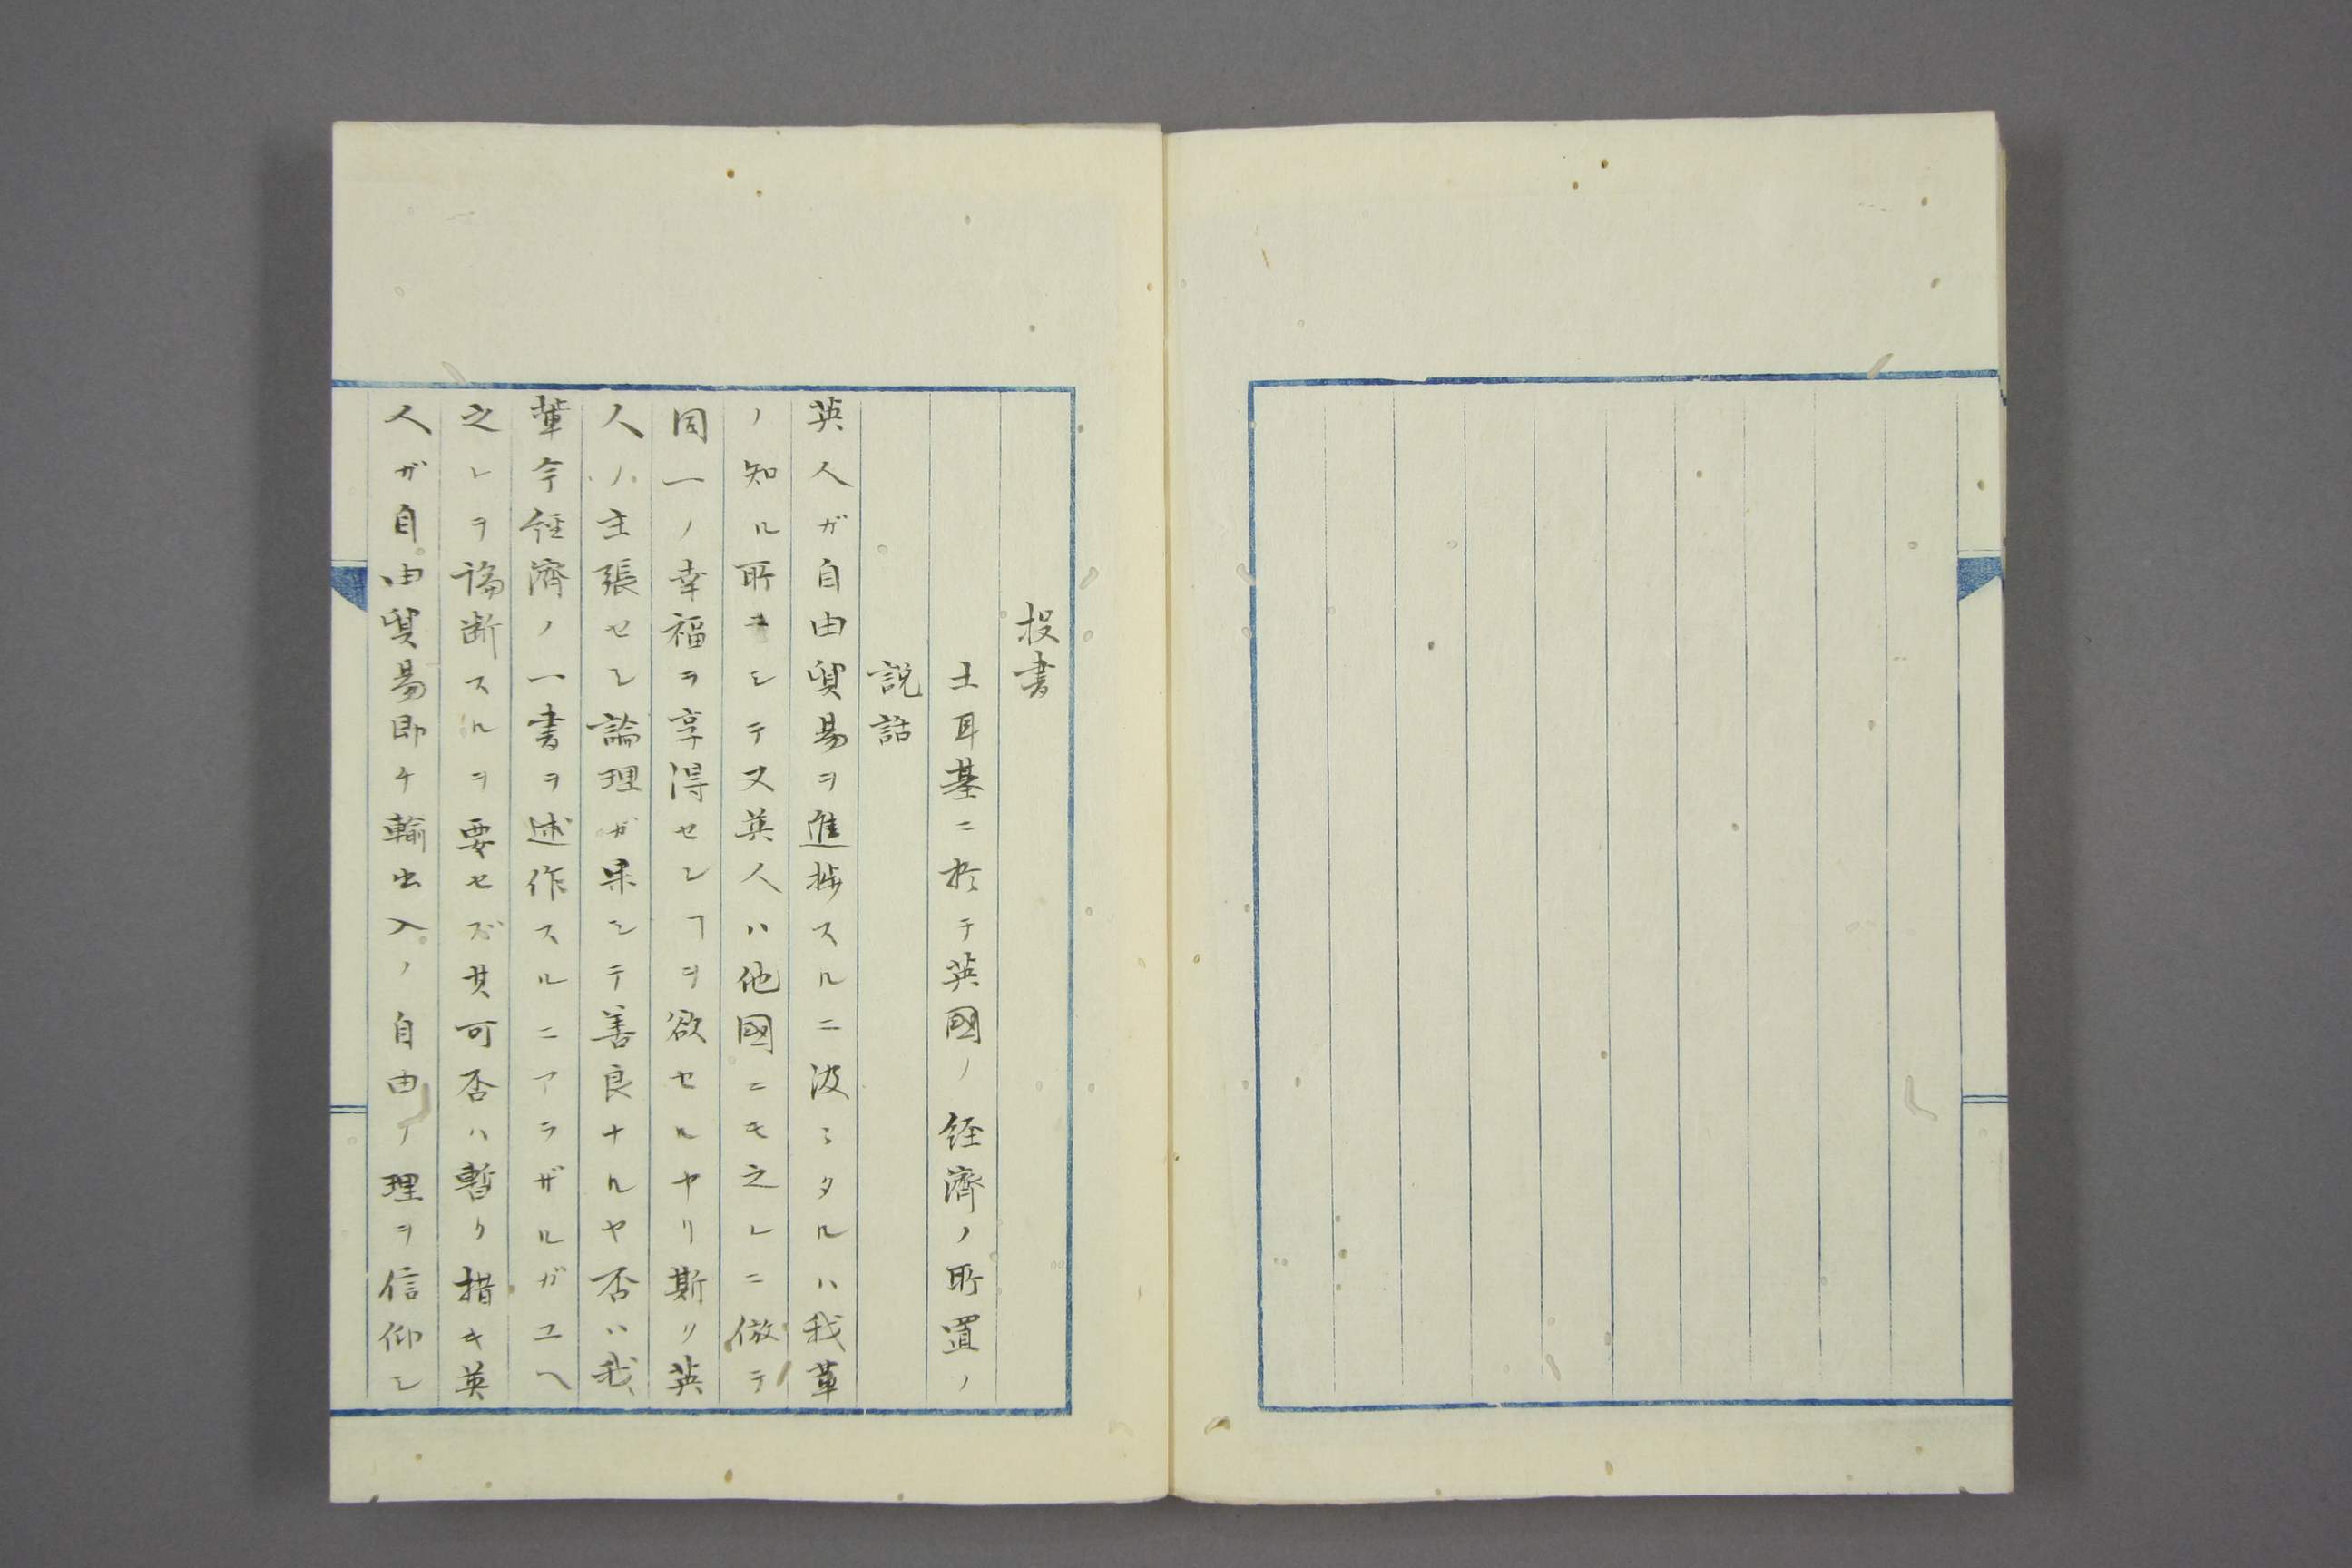 投書
土耳基ニ於テ英國ノ経濟ノ所置ノ
説話
英人ガ自由貿易ヲ進捗スルニ汲〻タルハ我輩
ノ知ル所ニシテ又英人ハ他國ニモ之レニ倣テ
同一ノ幸福ヲ享得セシヿヲ欲セルヤリ斯ク英
人ノ主張セシ論理ガ果シテ善良ナルヤ否ハ我
輩今経濟ノ一書ヲ述作スルニアラザルガユヘ
之レヲ論断スルヲ要セズ其可否ハ暫ク措キ英
人ガ自由貿易即チ輸出入ノ自由ノ理ヲ信仰シ